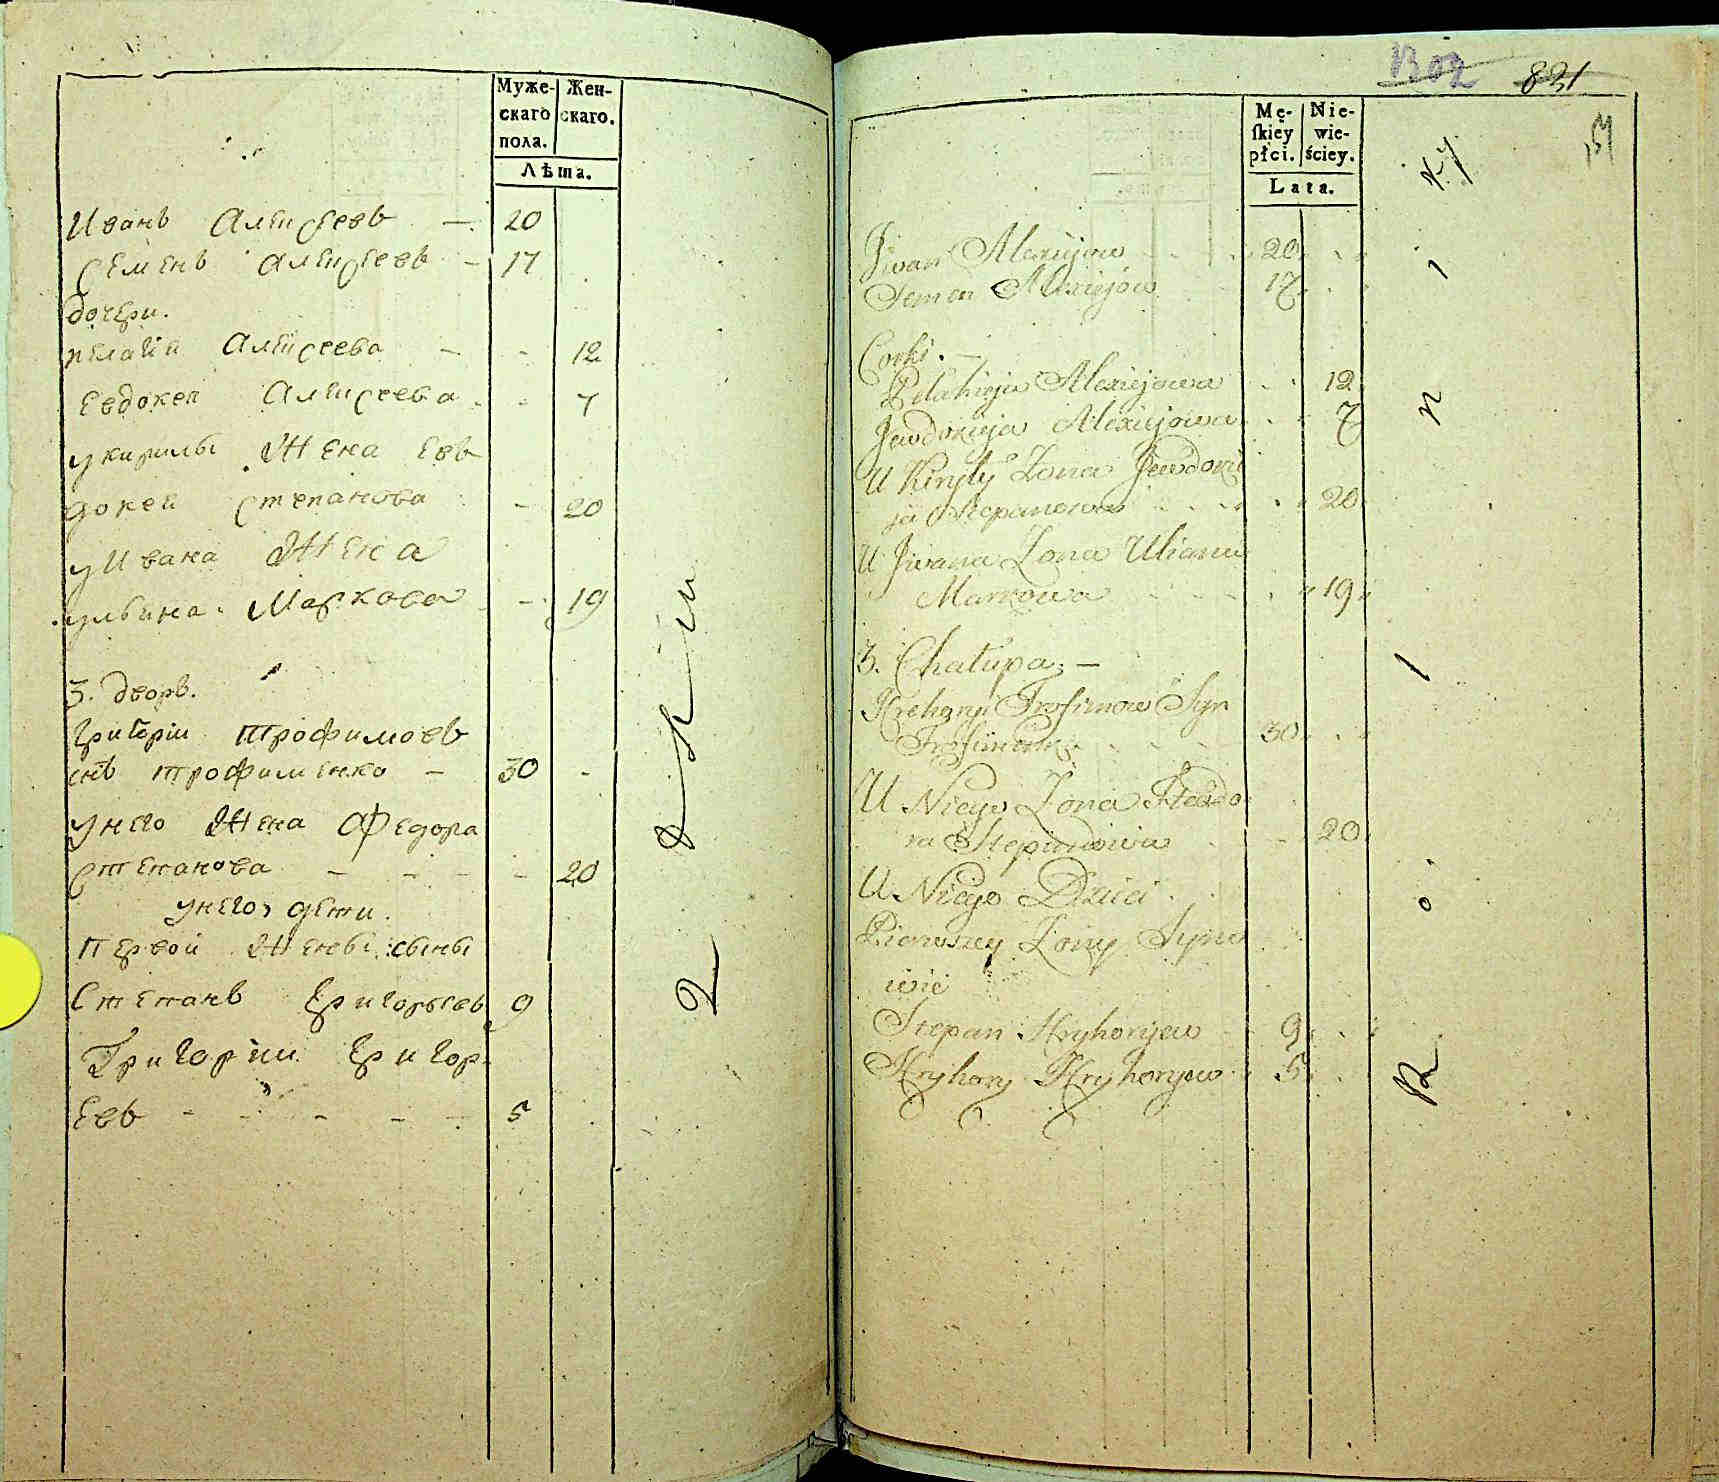 Муже-
скаго
пола.
Жен-
скаго.
Лѣта.
Иванъ Алексеевъ — 20
Семенъ Алексеевъ — 17
дочери.
пелагия Алексеева — - 12
Евдокея Алексеева - - 7
укирилы Жена Ев-
докея Степанова - 20
уИвана Жена
ульяна Маркова - - 19
3. дворъ.
Григорiи Трофимовъ
снъ трофименко — 30 -
унего Жена Федора
степанова - - - - 20
унего дети.
первой Жены сыны
Степанъ Григорьевъ 9
Григорiи Григор-
Евъ - - - - - 5
1302 831
Mę-
ſkiey
płci.
Nie-
wie-
ściey.
Lata.
Jwan Alexiejow 20
Semen Alexiejow 17
Corki. —
Pelahieja Alexiejowa 12
Jewdokieja Alexiejowa 7
U Kiryły Zona Jewdokie
ja Stepanowa 20
U Jiwana Zona Uliana
Markowa 19
3. Chałupa. —
Hrehory Trofimow Syn
Trofimenko 30
U Niego Zona Fteodo
ra Stepanowa 20
U Niego Dzieci
Pierwszey Zony Syno
wie
Stepan Hryhoryew 9
Hryhory Hryhoryew 5